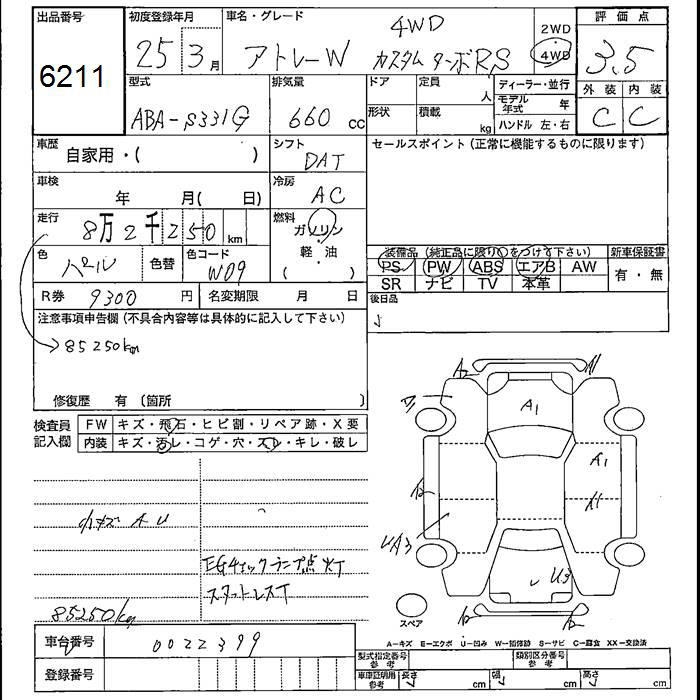 出品番号
6211
初度登録年月
25 3月
車名・グレード
アトレーW
4WD
カスタム ターボRS
2WD
4WD
評価点
3.5
外装 内装
C C
型式
ABA-S331G
排気量
660 cc
ドア
形状
定員
人
積載
kg
ディーラー・並行
モデル年式 年
ハンドル 左・右
車歴
自家用・( )
シフト
DAT
セールスポイント(正常に機能するものに限ります)
車検
年 月( 日)
冷房
AC
走行
8万2千250 km
燃料
ガソリン
軽・油
( )
色
パール
色替
色コード
W09
装備品(純正品に限り○をつけて下さい)
新車保証書
PS PW ABS エアB AW
SR ナビ TV 本革
有・無
R券 9300 円
名変期限 月 日
後日品
注意事項申告欄(不具合内容等は具体的に記入して下さい)
→85250km
修復歴 有(箇所 )
検査員記入欄
FW キズ・飛石・ヒビ割・リペア跡・X要
内装 キズ・汚レ・コゲ・穴・スレ・キレ・破レ
小キズ AU
EGチェックランプ点灯
スタットレスT
85250km
A2
A1
A1
UA3
U3
スペア
A-キズ E-エクボ U-凹み W-補修跡 S-サビ C-腐食 XX-交換済
車台番号
0022399
登録番号
型式指定番号
参考
類別区分番号
参考
車庫証明用
参考
長さ cm
幅 cm
高さ cm